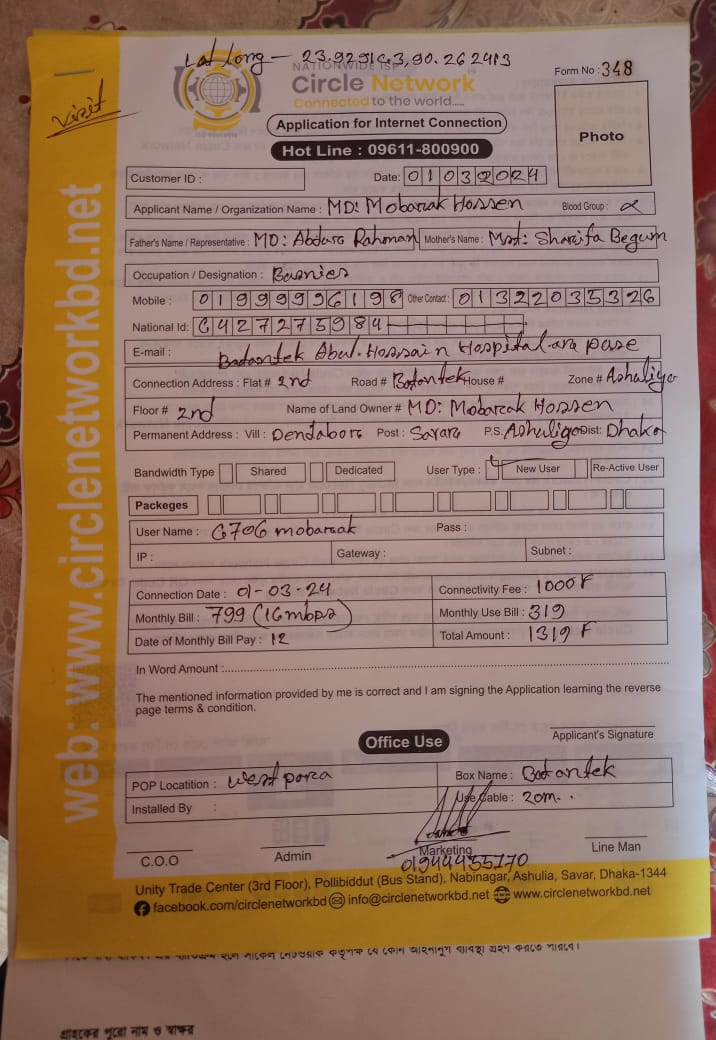 Lat long - 23.929163,90.262413
NATIONWIDE ISP
Circle Network
Connected to the world.....
Form No : 348
Visit
Application for Internet Connection
Hot Line : 09611-800900
Photo
web: www.circlenetworkbd.net
Customer ID : Date: 01032024
Applicant Name / Organization Name : MD: Mobarak Hossen Blood Group :
Father's Name / Representative : MD: Abdura Rahman Mother's Name : Mst: Sharifa Begum
Occupation / Designation :
Mobile : 01999996198 Other Contact : 01322035326
National Id: 6427275984
E-mail :
Badantek Abul. Hossain Hospital-ara pase
Connection Address : Flat # 2nd Road # Botantek House # Zone # Ashuliya
Floor # 2nd Name of Land Owner # MD: Mobarak Hossen
Permanent Address : Vill : Dendabora Post : Savara P.S. Ashuliya Dist: Dhaka
Bandwidth Type Shared Dedicated User Type : New User Re-Active User
Packeges
User Name : G706 mobarak Pass :
IP : Gateway : Subnet :
Connection Date : 01-03-24 Connectivity Fee : 1000 F
Monthly Bill : 799 (16mbps) Monthly Use Bill : 319
Date of Monthly Bill Pay : 12 Total Amount : 1319 F
In Word Amount :
The mentioned information provided by me is correct and I am signing the Application learning the reverse
page terms & condition.
Applicant's Signature
Office Use
POP Locatition : west para Box Name : Botantek
Installed By : Use Cable : 20m..
C.O.O Admin Marketing Line Man
01944455170
Unity Trade Center (3rd Floor), Pollibiddut (Bus Stand), Nabinagar, Ashulia, Savar, Dhaka-1344
facebook.com/circlenetworkbd info@circlenetworkbd.net www.circlenetworkbd.net
গ্রাহকের পুরো নাম ও স্বাক্ষর